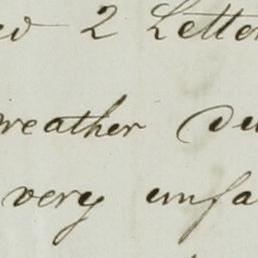 2 Letter
weather du
very unfa